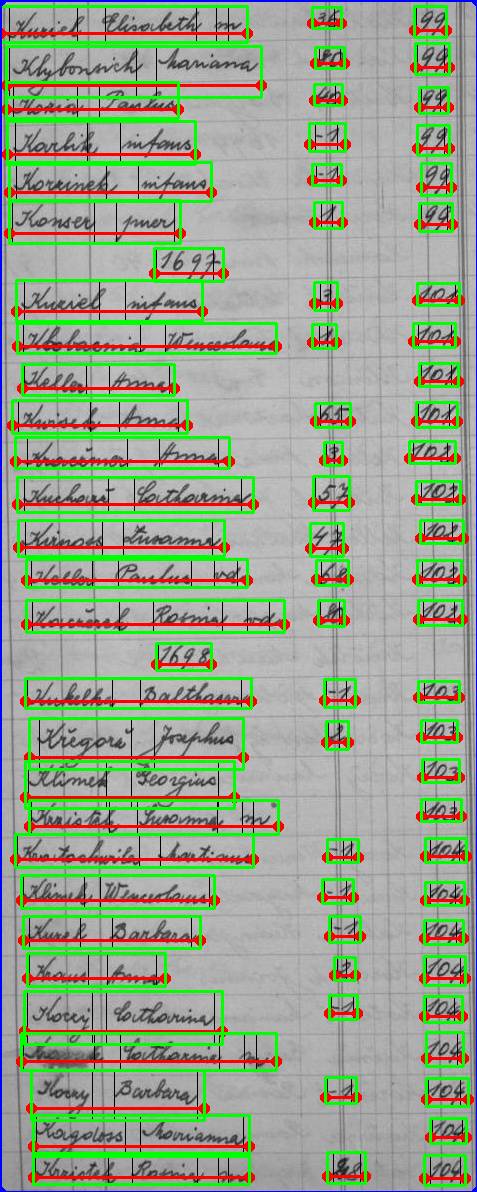 Kuziel Elisabeth m 36 99
Klybonsich Mariana 20 99
Kozia Paulus 40 99
Karlik infans -1 99
Korzinek infans -1 99
Konser puer 1 99
1697
Kuziel infans 3 101
Wenceslaus 1 101
Keller Anna 101
Kwisch Anna 65 101
Anna 102
Kuchorž Catharina 57 102
Kirnoss Zusanna 47 102
Keller Paulus vd 62 102
Rosina vda 102
1698
Kukelka Balthasar -1 103
Křegorž Josephus 103
Klimek Georgius 103
Krzistek Zusanna m 103
Kratochwila Martinus -1 104
Klimek Wenceslaus -1 104
Kurek Barbara -1 104
Kraus Anna 2 104
Korzy Catharina -1 104
Catharina m 104
Korzy Barbara -1 104
Kagdoss Marianna 104
Kristek Rosina m 104